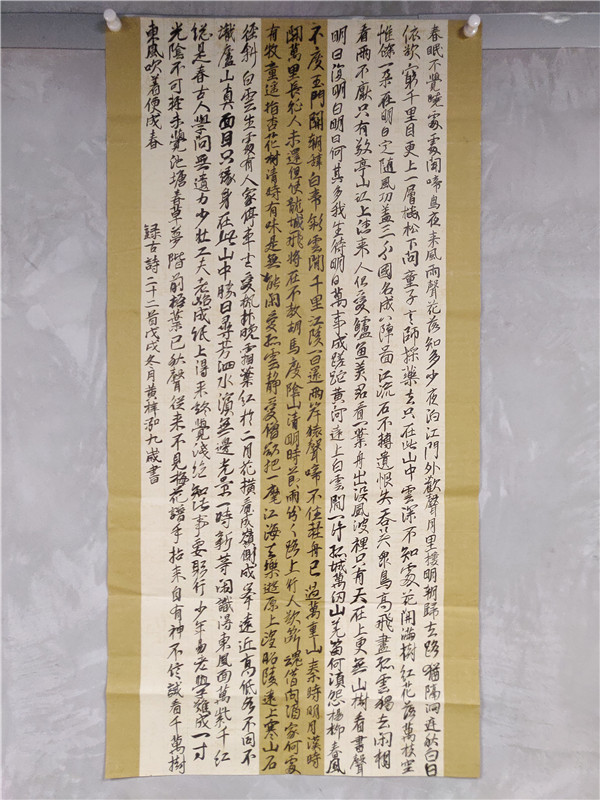 春眠不覺曉處處聞啼鳥夜來風雨聲花落知多少夜泊江門外歡聲月里樓明朝歸去路猶隔洞庭秋白日
依欲窮千里目更上一層樓松下問童子言師採藥去只在此山中雲深不知處花開滿樹紅花落萬枝空
惟餘一朵在明日定隨風功蓋三分國名成八陣圖江流石不轉遺恨失吞吳眾鳥高飛盡孤雲獨去閑相
看兩不厭只有敬亭山江上往來人但愛鱸魚美君看一葉舟出沒風波裡只有天在上更無山樹看書聲
明日復明日明日何其多我生待明日萬事成蹉跎黃河遠上白雲間一片孤城萬仞山羌笛何須怨楊柳春風
不度玉門關朝辭白帝彩雲間千里江陵一日還兩岸猿聲啼不住輕舟已過萬重山秦時明月漢時
關萬里長征人未還但使龍城飛將在不教胡馬度陰山清明時節雨紛紛路上行人欲斷魂借問酒家何處
有牧童遙指杏花樹清時有味是無能閑愛孤雲靜愛僧欲把一麾江海去樂遊原上望昭陵遠上寒山石
徑斜白雲生處有人家停車坐愛楓林晚霜葉紅於二月花橫看成嶺側成峰遠近高低各不同不
識廬山真面目只緣身在此山中勝日尋芳泗水濱無邊光景一時新等閑識得東風面萬紫千紅
總是春古人學問無遺力少壯工夫老始成紙上得來終覺淺絕知此事要躬行少年易老學難成一寸
光陰不可輕未覺池塘春草夢階前梧葉已秋聲從來不見梅花譜手拈來自有神不信試看千萬樹
東風吹著便成春
錄古詩二十二首戊戌冬月黃梓泓九歲書